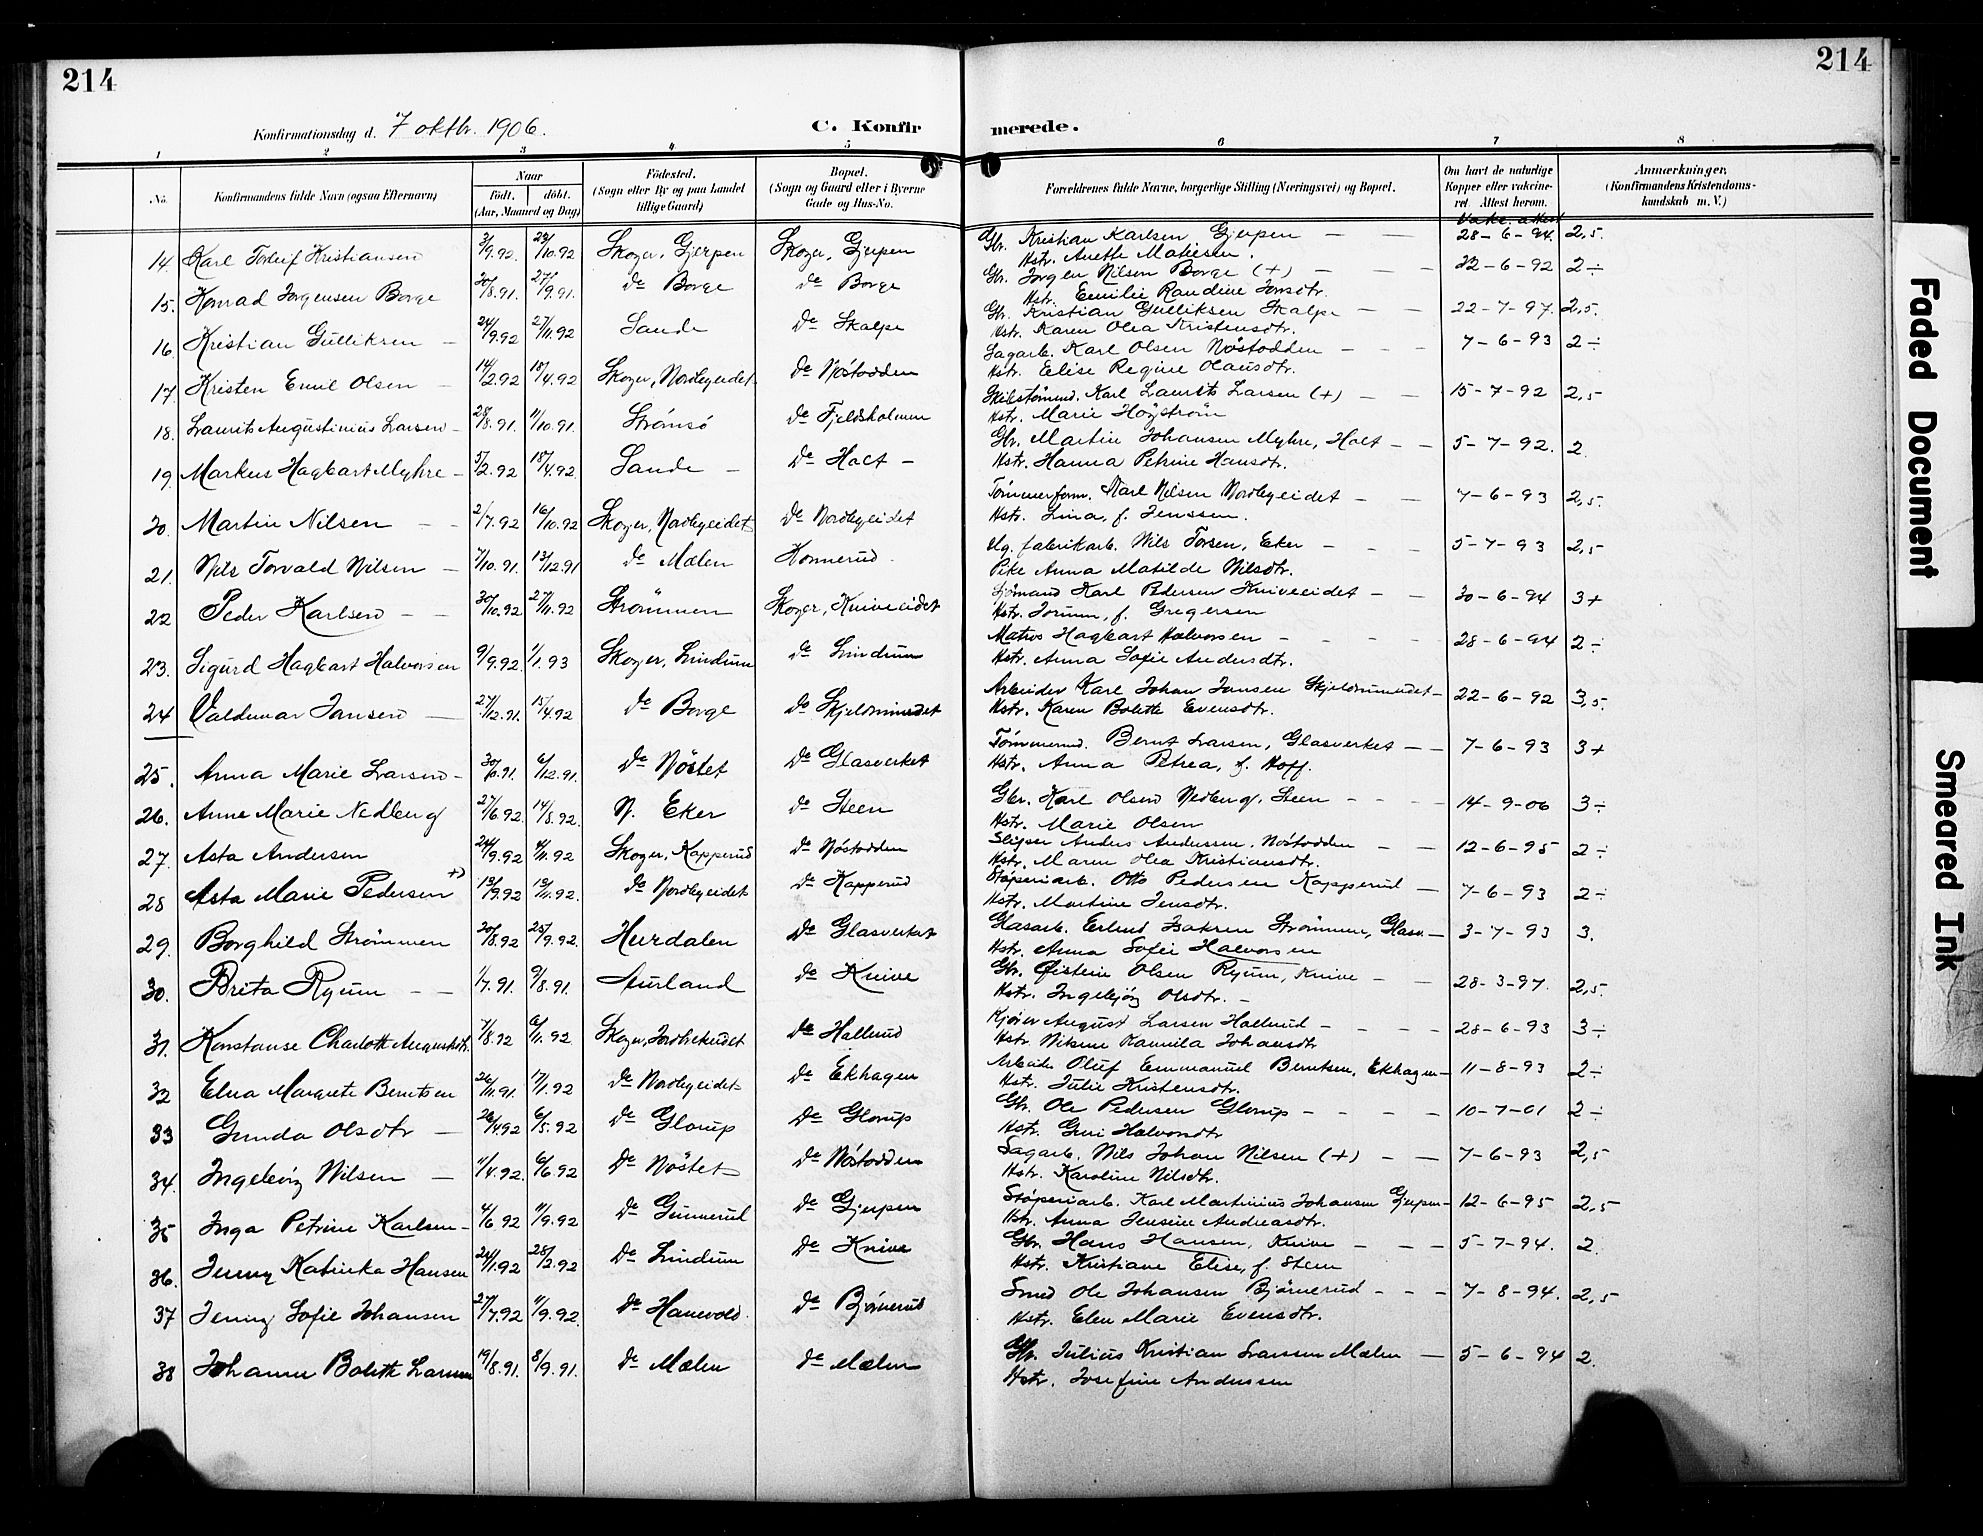 214
214
Konfirmationsdag d. 7 oktbr. 1906.
C. Konfirmerede.
1 2 3 4 5 6 7 8
No.
Konfirmandens fulde Navn (ogsaa Efternavn)
Naar
födt. döbt.
(Aar, Maaned og Dag)
Födested.
(Sogn eller By og paa Landet
tillige Gaard)
Bopæl.
(Sogn og Gaard eller i Byerne
Gade og Hus-No.
Forældrenes fulde Navne, borgerlige Stilling (Næringsvei) og Bopæl.
Om havt de naturlige
Kopper eller vaccine-
ret. Attest herom.
Anmærkninger,
(Konfirmandens Kristendoms-
kundskab m. V.)
Vakc. attest
14. Karl Torleif Kristiansen 3/9.92. 29/10.92 Skoger, Gjerpen Skoger, Gjerpen Gbr. Kristian Karlsen Gjerpen — — 28-6-94. 2,5.
Hstr. Anette Matiesen.
15. Konrad Jørgensen Borge 30/8.91. 27/9.91. do Borge do Borge Gbr. Jørgen Nilsen Borge (+) — — — 22-6-92 2÷
Hstr. Emilie Randine Jonsdtr.
16. Kristian Gulliksen — 24/9.92 27/11.92 Sande do Skalpe Gbr. Kristian Gulliksen Skalpe — — 22-7-97. 2,5.
Hstr. Karen Olea Kristensdtr.
17. Kristen Emil Olsen — 14/2.92 18/4.92 Skoger, Nordbyeidet do Nøstodden Sagarb. Karl Olsen Nøstodden — — — 7-6-93 2÷
Hstr. Elise Regine Olausdtr.
18. Laurits Augustinius Larsen — 28/8.91. 11/10.91. Strömsö do Fjeldsholmen Skibstømmd. Karl Laurits Larsen (+) — — 15-7-92 2,5
Hstr. Marie Högström
19. Markus Hagbart Myhre — 5/2.92 18/4.92 Sande — do Holt — Gbr. Martin Johansen Myhre, Holt — — 5-7-92. 2.
Hstr. Hanna Petrine Hansdtr.
20. Martin Nilsen — — 2/7.92 16/10.92 Skoger, Nordbyeidet do Nordbyeidet Tømmerform. Karl Nilsen Nordbyeidet — — 7-6-93 2,5.
Hstr. Lina, f. Jenssen.
21. Nils Torvald Nilsen — 7/10.91. 13/12.91 do Mælen Konnerud. Ug. fabrikarb. Nils Torsen, Eker — — — 5-7-93 2,5
Pike Anna Matilde Nilsdtr.
22 Peder Karlsen — — 30/10.92 27/11.92 Strömmen Skoger, Kniveeidet Sjömand Karl Pedersen Kniveeidet — — 30-6-94 3+
Hstr. Jorunn, f. Gregersen
23. Sigurd Hagbart Halvorsen 9/9.92. 1/1.93 Skoger, Lindum do Lindum Matros Hagbart Halvorsen — — — — 28-6-94 2÷
Hstr. Anna Sofie Andersdtr.
24 Valdemar Jansen — 27/12.91. 15/4.92 do Borge do Skjeldrumeidet Arbeider Karl Johan Jansen Skjeldrumeidet — 22-6-92 3,5.
Hstr. Karen Bolette Evensdtr.
25. Anna Marie Larsen — 30/6.91. 6/12.91. do Nöstet do Glasverket Tömmermd. Bernt Larsen, Glasverket — — 7-6-93 3+
Hstr. Anna Petrea, f. Hoff.
26. Anne Marie Nedberg 27/6.92. 14/8.92. N. Eker do Steen Gbr. Karl Olsen Nedberg, Steen — — — — 14-9-06 3÷
Hstr. Marie Olsen
27. Asta Andersen 24/9.92 4/11.92 Skoger, Kapperud do Nöstodden Sliper Anders Andersen, Nöstodden — — 12-6-95 2÷
Hstr. Maren Olea Kristiansdtr.
28 Asta Marie Pedersen +) 13/9.92 13/11.92. do Nordbyeidet do Kapperud Støperiarb. Otto Pedersen Kapperud — 7-6-93 2÷
Hstr. Martine Jensdtr.
29. Borghild Strömmen 20/8.92 25/9.92. Hurdalen do Glasverket Glasarb. Erland Isaksen Strömmen, Glasv. — 3-7-93 3.
Hstr. Anna Sofie Halvorsen
30. Brita Ryum — — 1/7.91. 9/8.91. Aurland do Knive Gbr. Øistein Olsen Ryum, Knive — — 28-3-97. 2,5.
Hstr. Ingebjörg Olsdtr. —
31. Konstanse Charlotte Augustsdtr. 7/8.92 6/11.92 Skoger, Jordbrekeidet do Hallerud Kjører August Larsen Hallerud — — — — 28-6-93 3÷
Hstr. Nikine Kamilla Johansdtr
32 Elna Margrete Berntsen 26/11.91. 17/1.92 do Nordbyeidet do Ekhagen Arbeider Oluf Emmanuel Berntsen, Ekhagen — 11-8-93 2÷
Hstr. Julie Kristensdtr.
33 Gunda Olsdtr — 26/4.92 6/5.92 do Glorup do Glorup Gbr. Ole Pedersen Glorup — — — — 10-7-01 2÷
Hstr. Guri Halvorsdtr
34. Ingeborg Nilsen — 11/4.92. 6/6.92 do Nöstet do Nöstodden Sagarb. Nils Johan Nilsen (+) — — 7-6-93 2,5
Hstr. Karoline Nilsdtr.
35 Inga Petrine Karlsen — 4/6 92 11/9.92 do Gunnerud do Gjerpen Støperiarb. Karl Martinius Johansen Gjerpen — 12-6-95 2,5
Hstr. Anna Jensine Andreasdtr.
36. Jenny Katinka Hansen 24/1.92 28/2.92 do Lindum do Knive Gbr. Hans Hansen, Knive — — — 5-7-94. 2.
Hstr. Kristiane Elise, f. Steen
37 Jenny Sofie Johansen 27/7.92 11/9.92. do Hanevold. do Bjørnerud Smed Ole Johansen Bjørnerud — — — 7-8-94. 2,5
Hstr. Elen Marie Evensdtr.
38 Johanne Bolette Larsen 19/8.91. 8/9.91. do Mælen do Mælen Gbr. Julius Kristian Larssen Mælen — 5-6-94 2.
Hstr. Josefine Anderssen
Faded Document
Smeared Ink